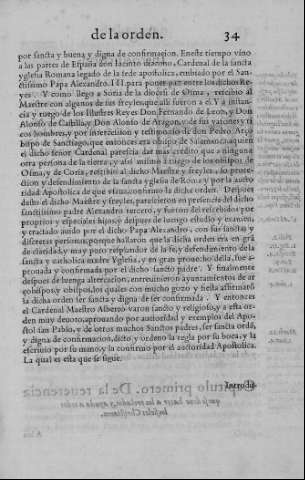 de la orden. 34
por sancta y buena y digna de confirmacion. Eneste tiempo vino
a las partes de España don Jacinto diacono, Cardenal de la sancta
yglesia Romana legado de la sede apostolica, embiado por el San-
ctissimo Papa Alexandro. III para poner paz entre los dichos Re-
yes. Y como llego a Soria de la diocesi de Osma, rescibio al
Maestre con algunos de sus freyles, que alli fueron a el. Y a instan-
cia y ruego de los Illustres Reyes Don Fernando de Leon, y Don
Alonso de Castilla, y Don Alonso de Aragon, y de sus varones y ri
cos hombres, y por intercession y testimonio de don Pedro Arço
bispo de Sanctiago, que entonces era obispo de Salamonca, a quien
el dicho señor Cardenal parescia dar mas credito que a ninguna
otra persona de la tierra, y assi mismo a ruego de los obispos de
Osma, y de Coria, rescibio al dicho Maestre y freyles, so la prote-
ction y defendimiento de la sancta yglesia de Roma: y por la aucto
ridad Apostolica de que vsaua, confirmo la dicha orden. Despues
desto el dicho Maestre y freyles, parescieron en presencia del dicho
sanctissimo padre Alexandro tercero, y fueron del rescebidos por
proprios y especiales hijos: y despues de luengo estudio y examen,
y tractado auido por el dicho Papa Alexandro, con sus sanctas y
discretas personas, porque hallaron que la dicha orden era en grã
de claridad, y muy poco resplandor de la fe, y defendimiento de la
sancta y catholica madre Yglesia, y en gran prouecho della, fue a-
prouada y confirmada por el dicho sancto padre. Y finalmente
despues de luenga altercacion, entreuinieron ayuntamientos de ar
çobispos y obispos, los quales con mucho gozo y fiesta affirmarõ
la dicha orden ser sancta y digna de ser confirmada. Y entonces
el Cardenal Maestro Alberto varon sancto y religioso, y a esta or-
den muy deuoto, aprouando por auctoridad y exemplos del Apo-
stol san Pablo, y de otros muchos Sanctos padres, ser sancta ordẽ,
y digna de confirmacion, dicto y ordeno la regla por su boca, y la
escriuio por su mano, y la confirmo por el auctoridad Apostolica.
La qual es esta que se sigue.
Introdu